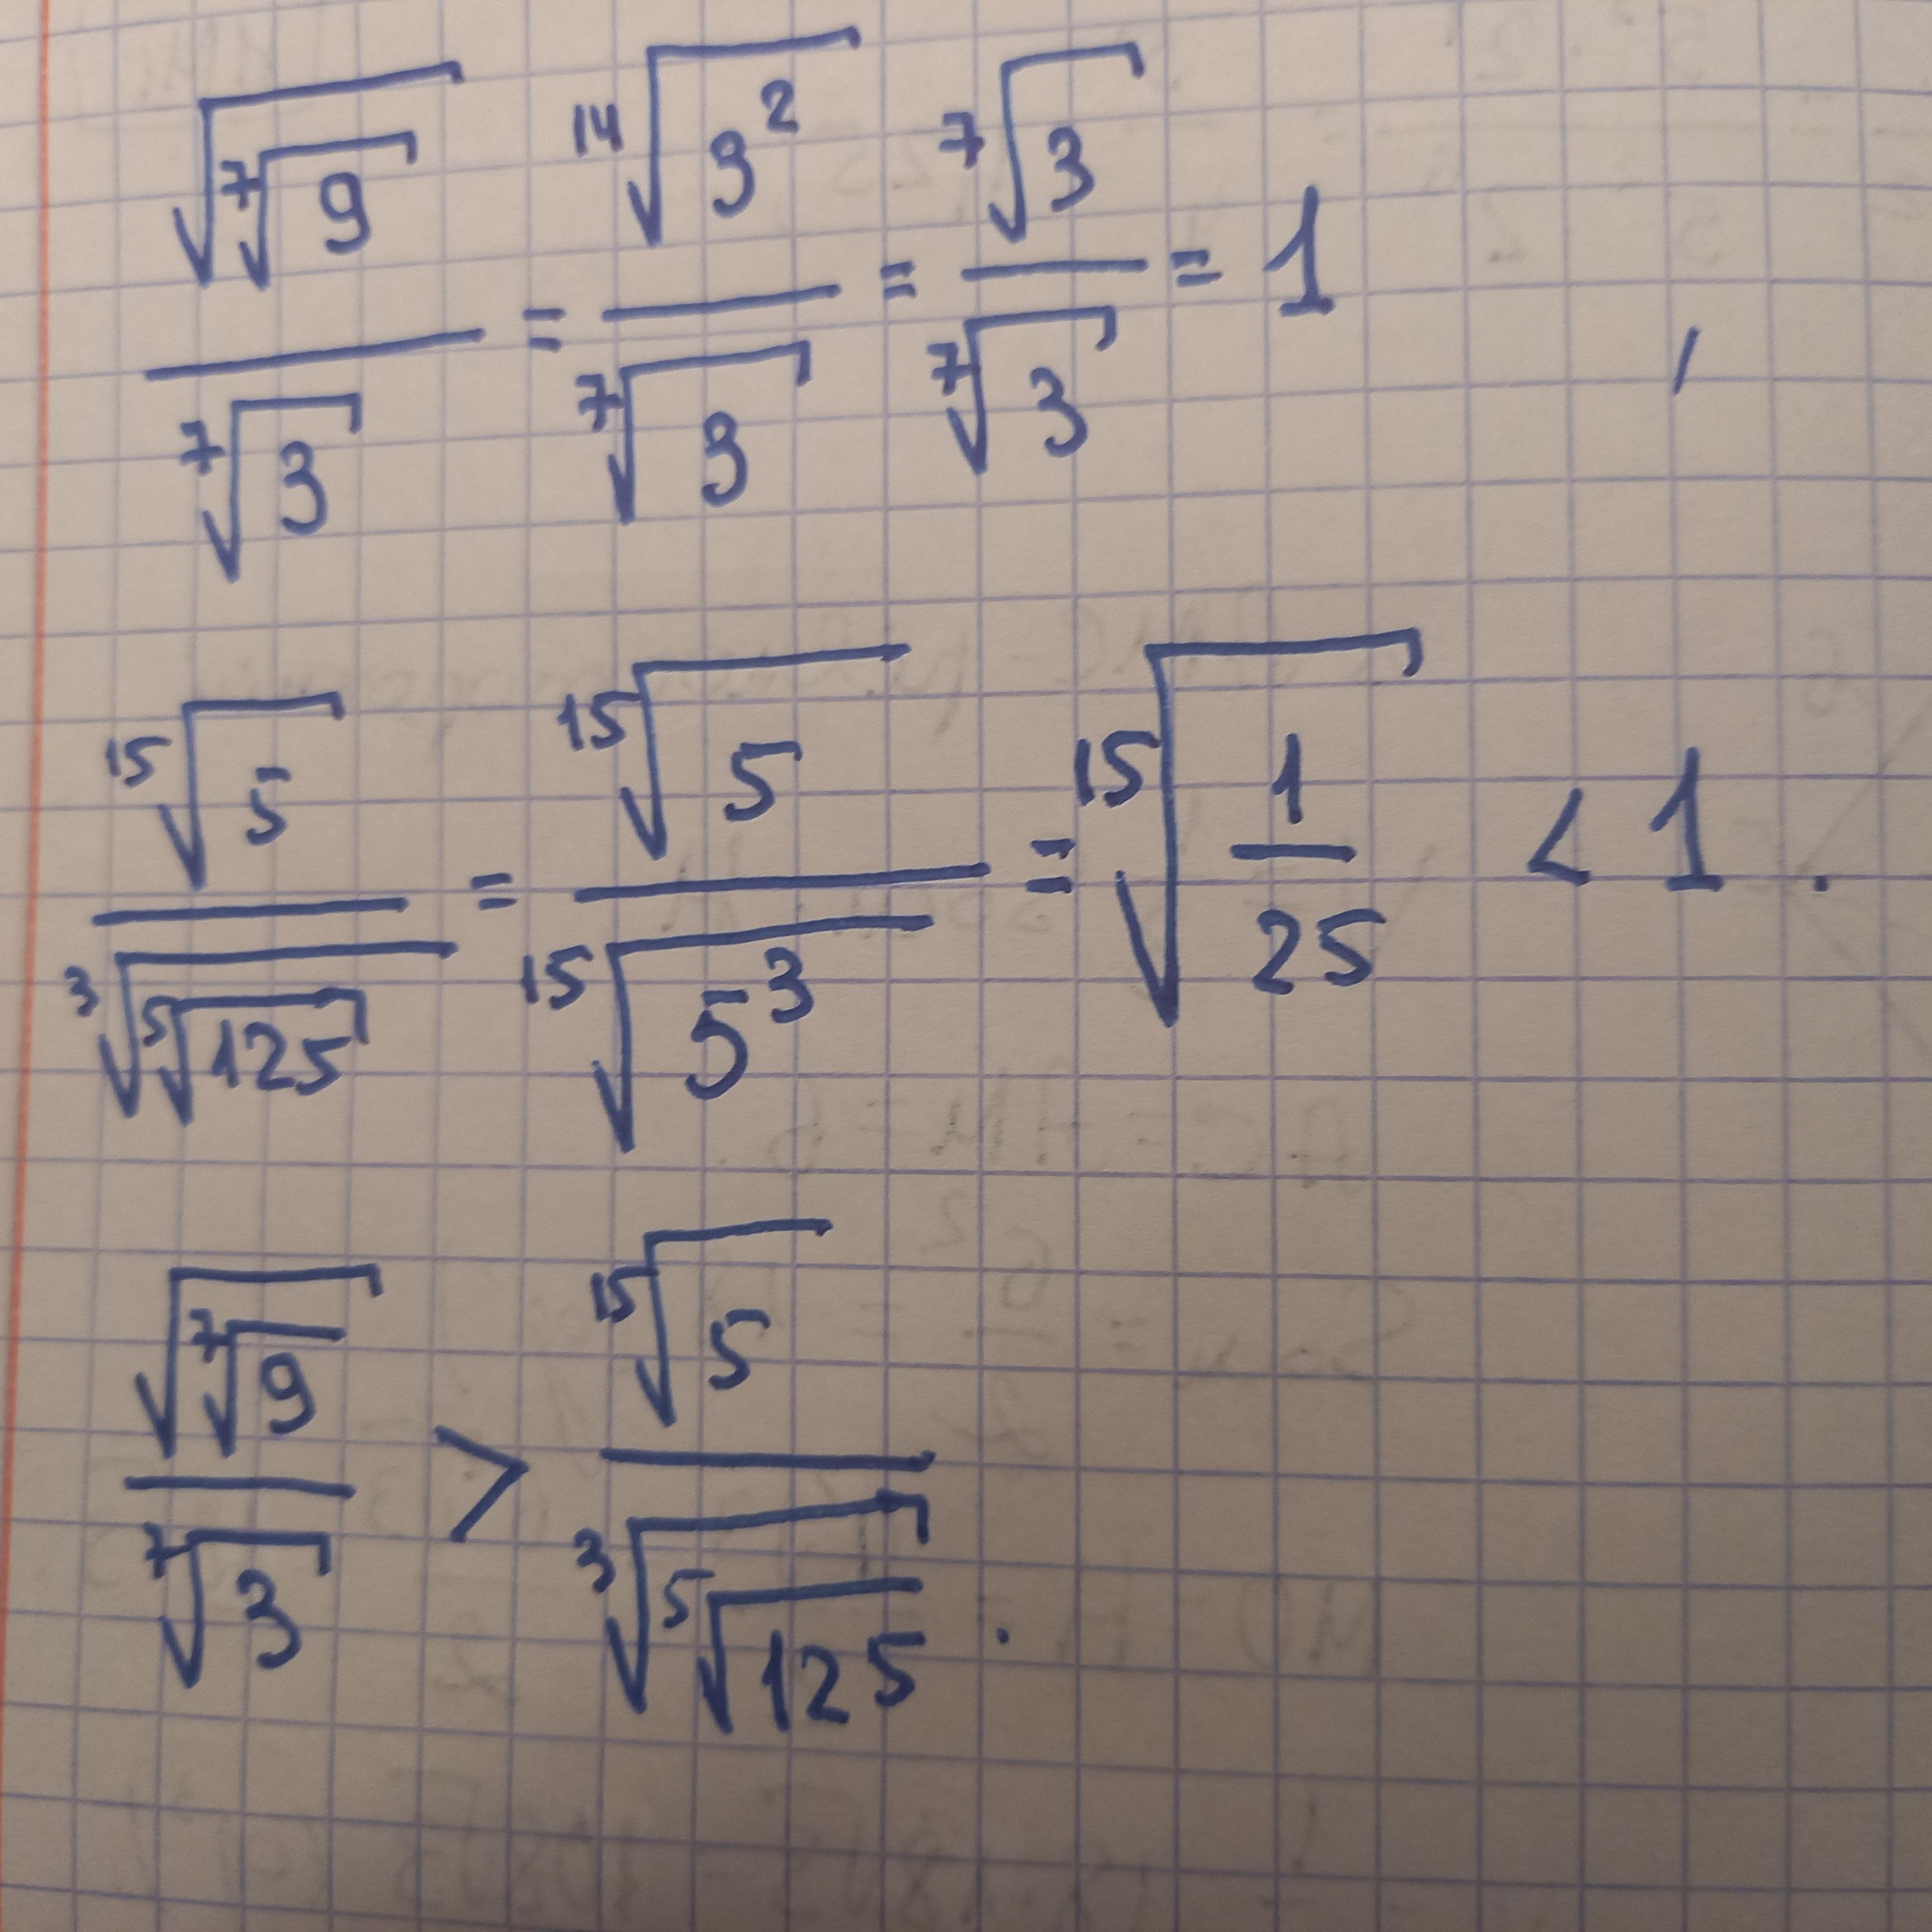 √(⁷√9) / ⁷√3 = ¹⁴√(3²) / ⁷√3 = ⁷√3 / ⁷√3 = 1 ,
¹⁵√5 / ³√(⁵√125) = ¹⁵√5 / ¹⁵√(5³) = ¹⁵√(1/25) < 1 .
√(⁷√9) / ⁷√3 > ¹⁵√5 / ³√(⁵√125) .